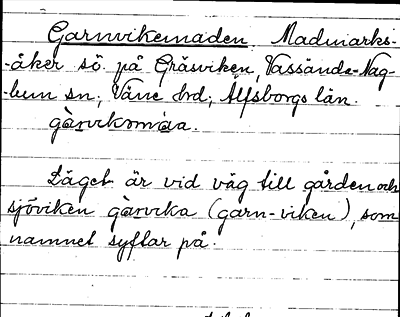 Garnvikemaden Madmarks-
-åker sö. på Gräsviken, Vassända-Nag-
-lum sn, Väne hd, Älfsborgs län.
gàrvikomáa.
Läget är vid väg till gården och
sjöviken gàrvika (garn-viken), som
namnet syftar på.